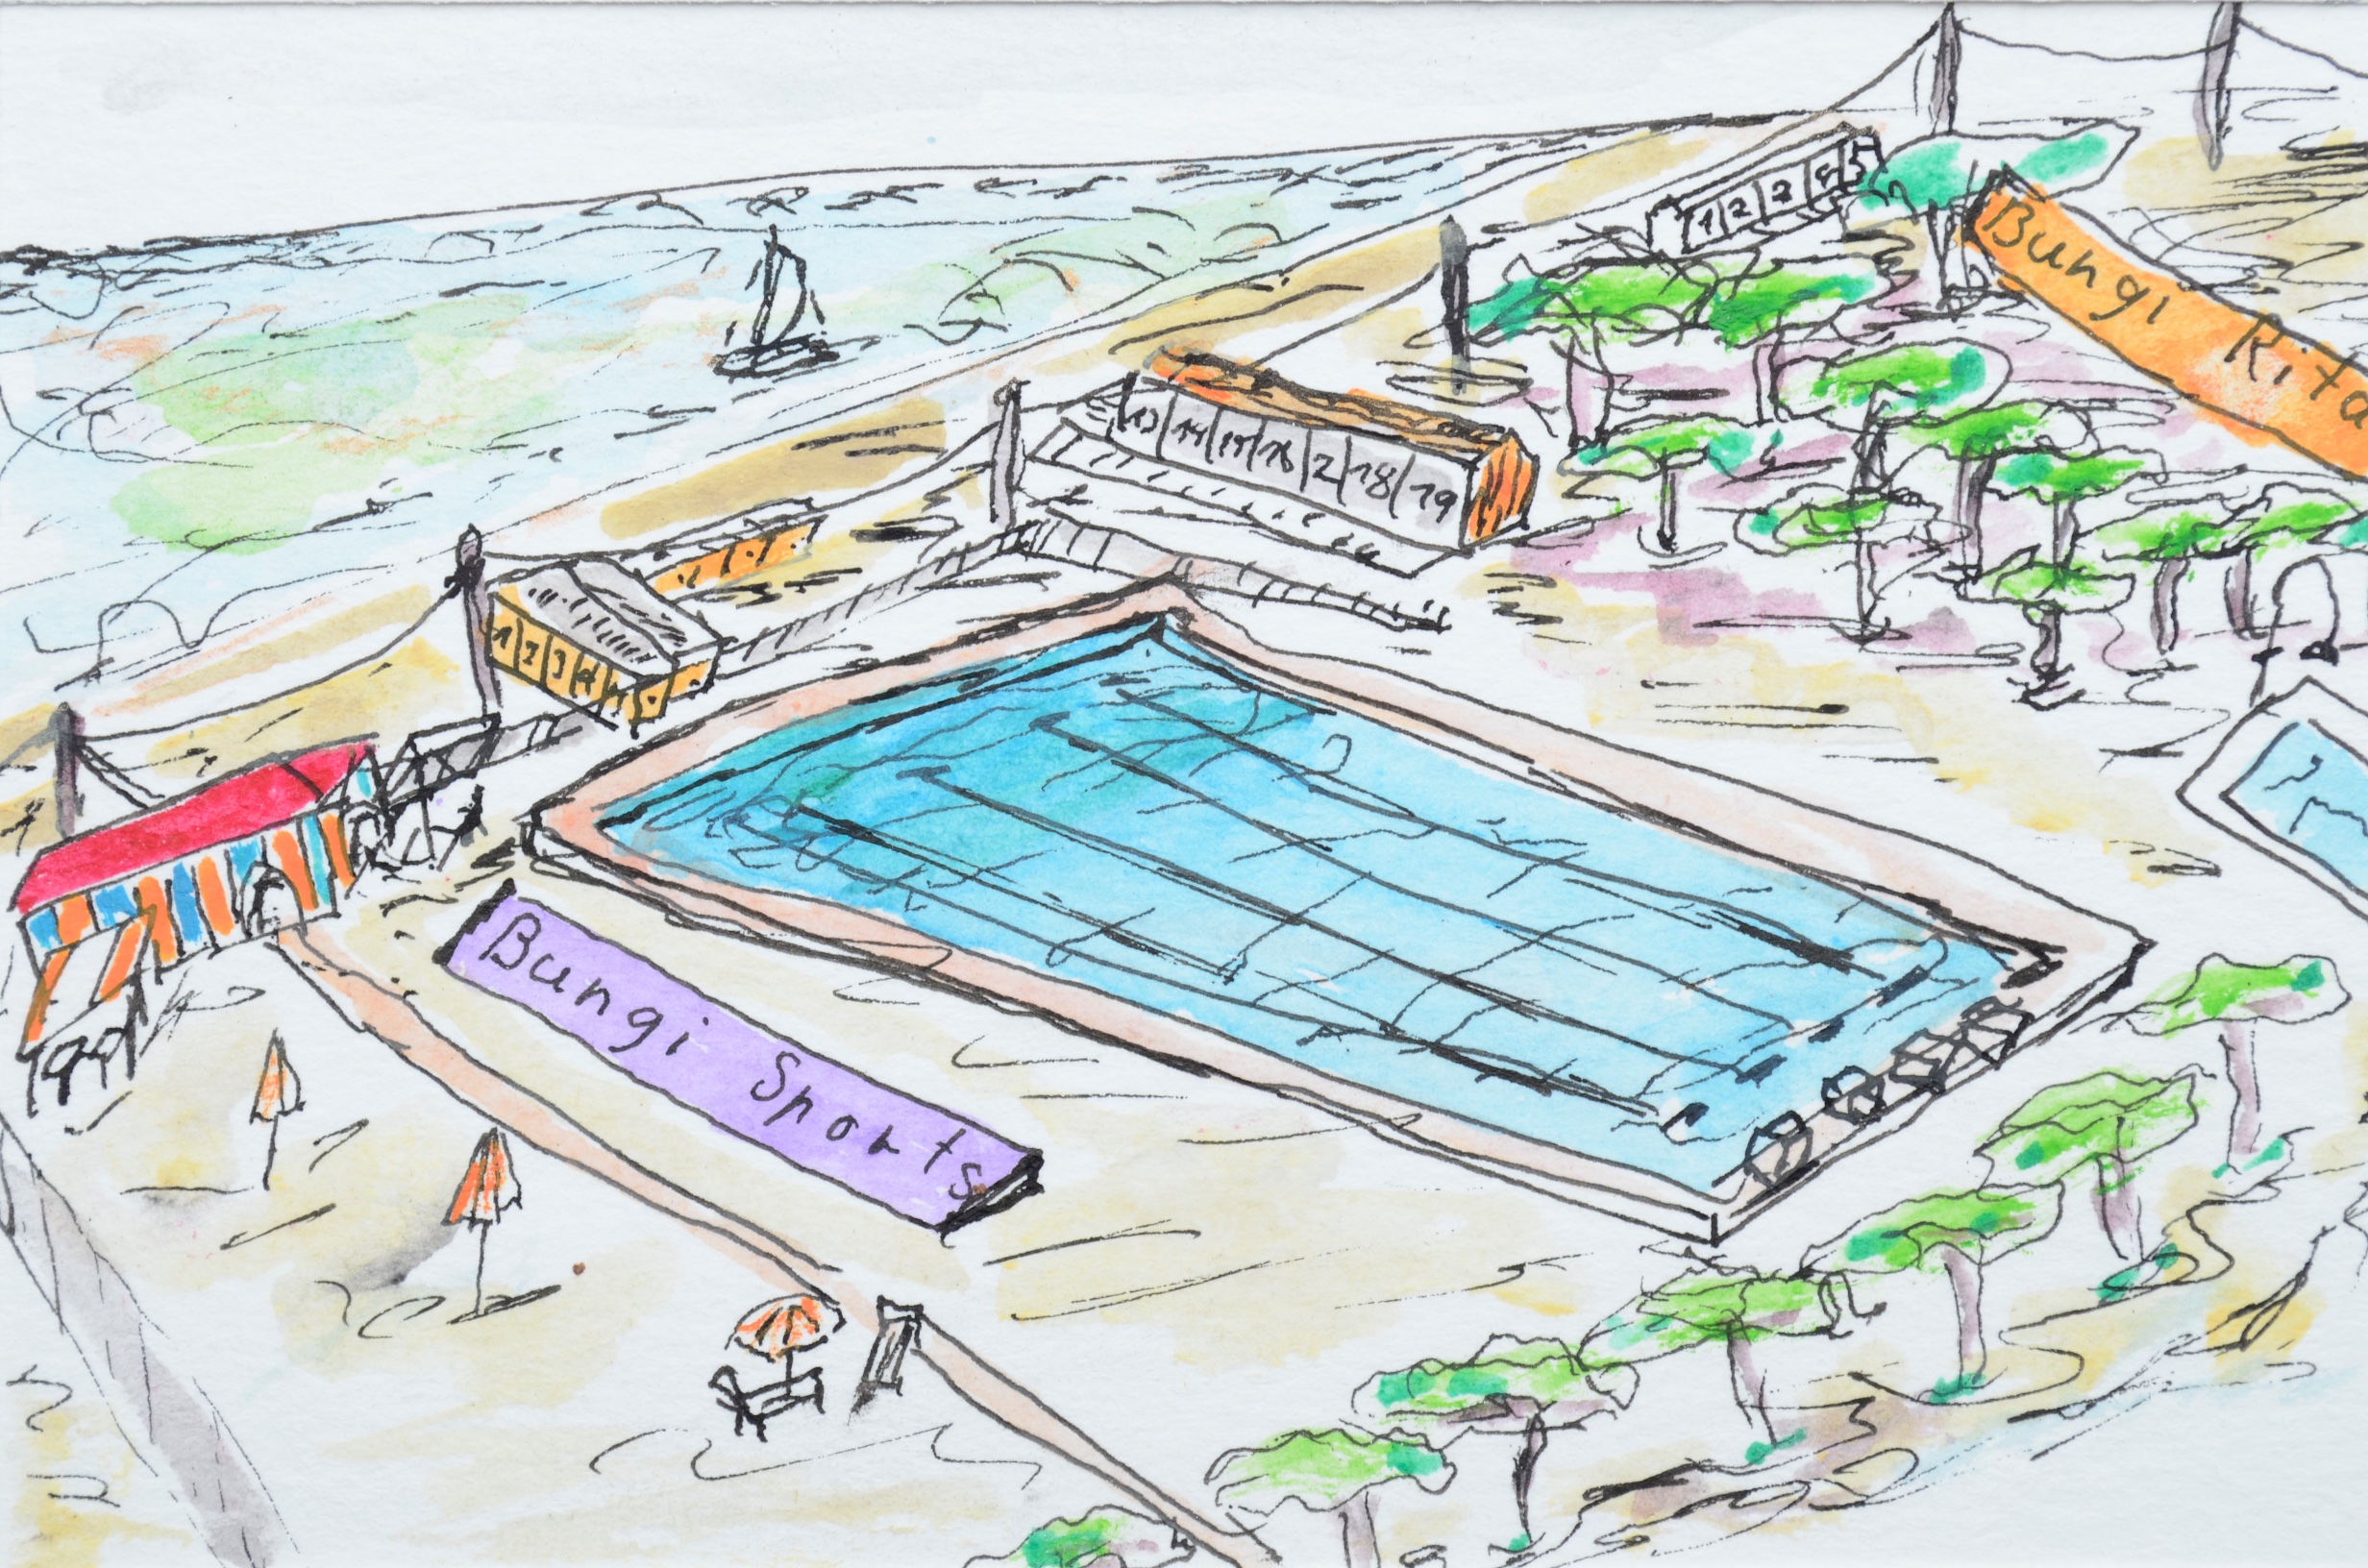 1 2 3 4 5
Bungi Rita
13 14 15 16 2 18 19
1 2 3 4
Bungi Sports